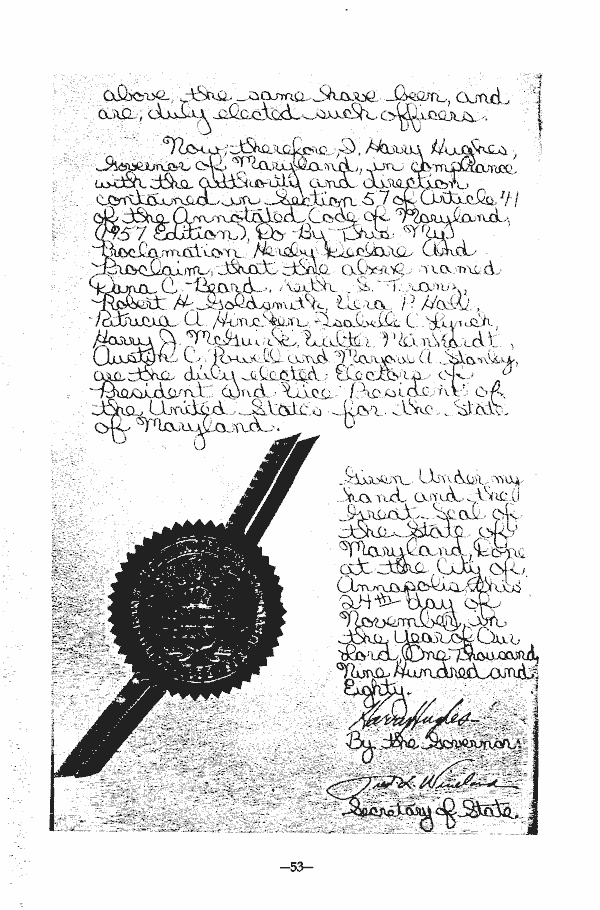 above, the same have been, and
are, duly elected such officers.
Now, therefore, I, Harry Hughes,
Governor of Maryland, in compliance
with the authority and direction
contained in Section 57 of Article 41
of the Annotated Code of Maryland,
(1957 Edition), Do By This My
Proclamation Hereby Declare And
Proclaim, that the above named
Dana C. Beard, Ruth S. Franz,
Robert H. Goldsmith, Vera P. Hall,
Patricia A. Hincken, Isabelle C. Lynch,
Harry J. McGuirk, Walter Meinhardt,
Austin C. Powell and Marjorie A. Stanley,
are the duly elected Electors of
President and Vice President of
the United States for the State
of Maryland.
Given Under my
hand and the
Great Seal of
the State of
Maryland, Done
at the City of
Annapolis, this
24th Day of
November, in
the Year of Our
Lord, One Thousand,
Nine Hundred and
Eighty.
Harry Hughes
By the Governor:
Fred L. Wineland
Secretary of State.
—53—